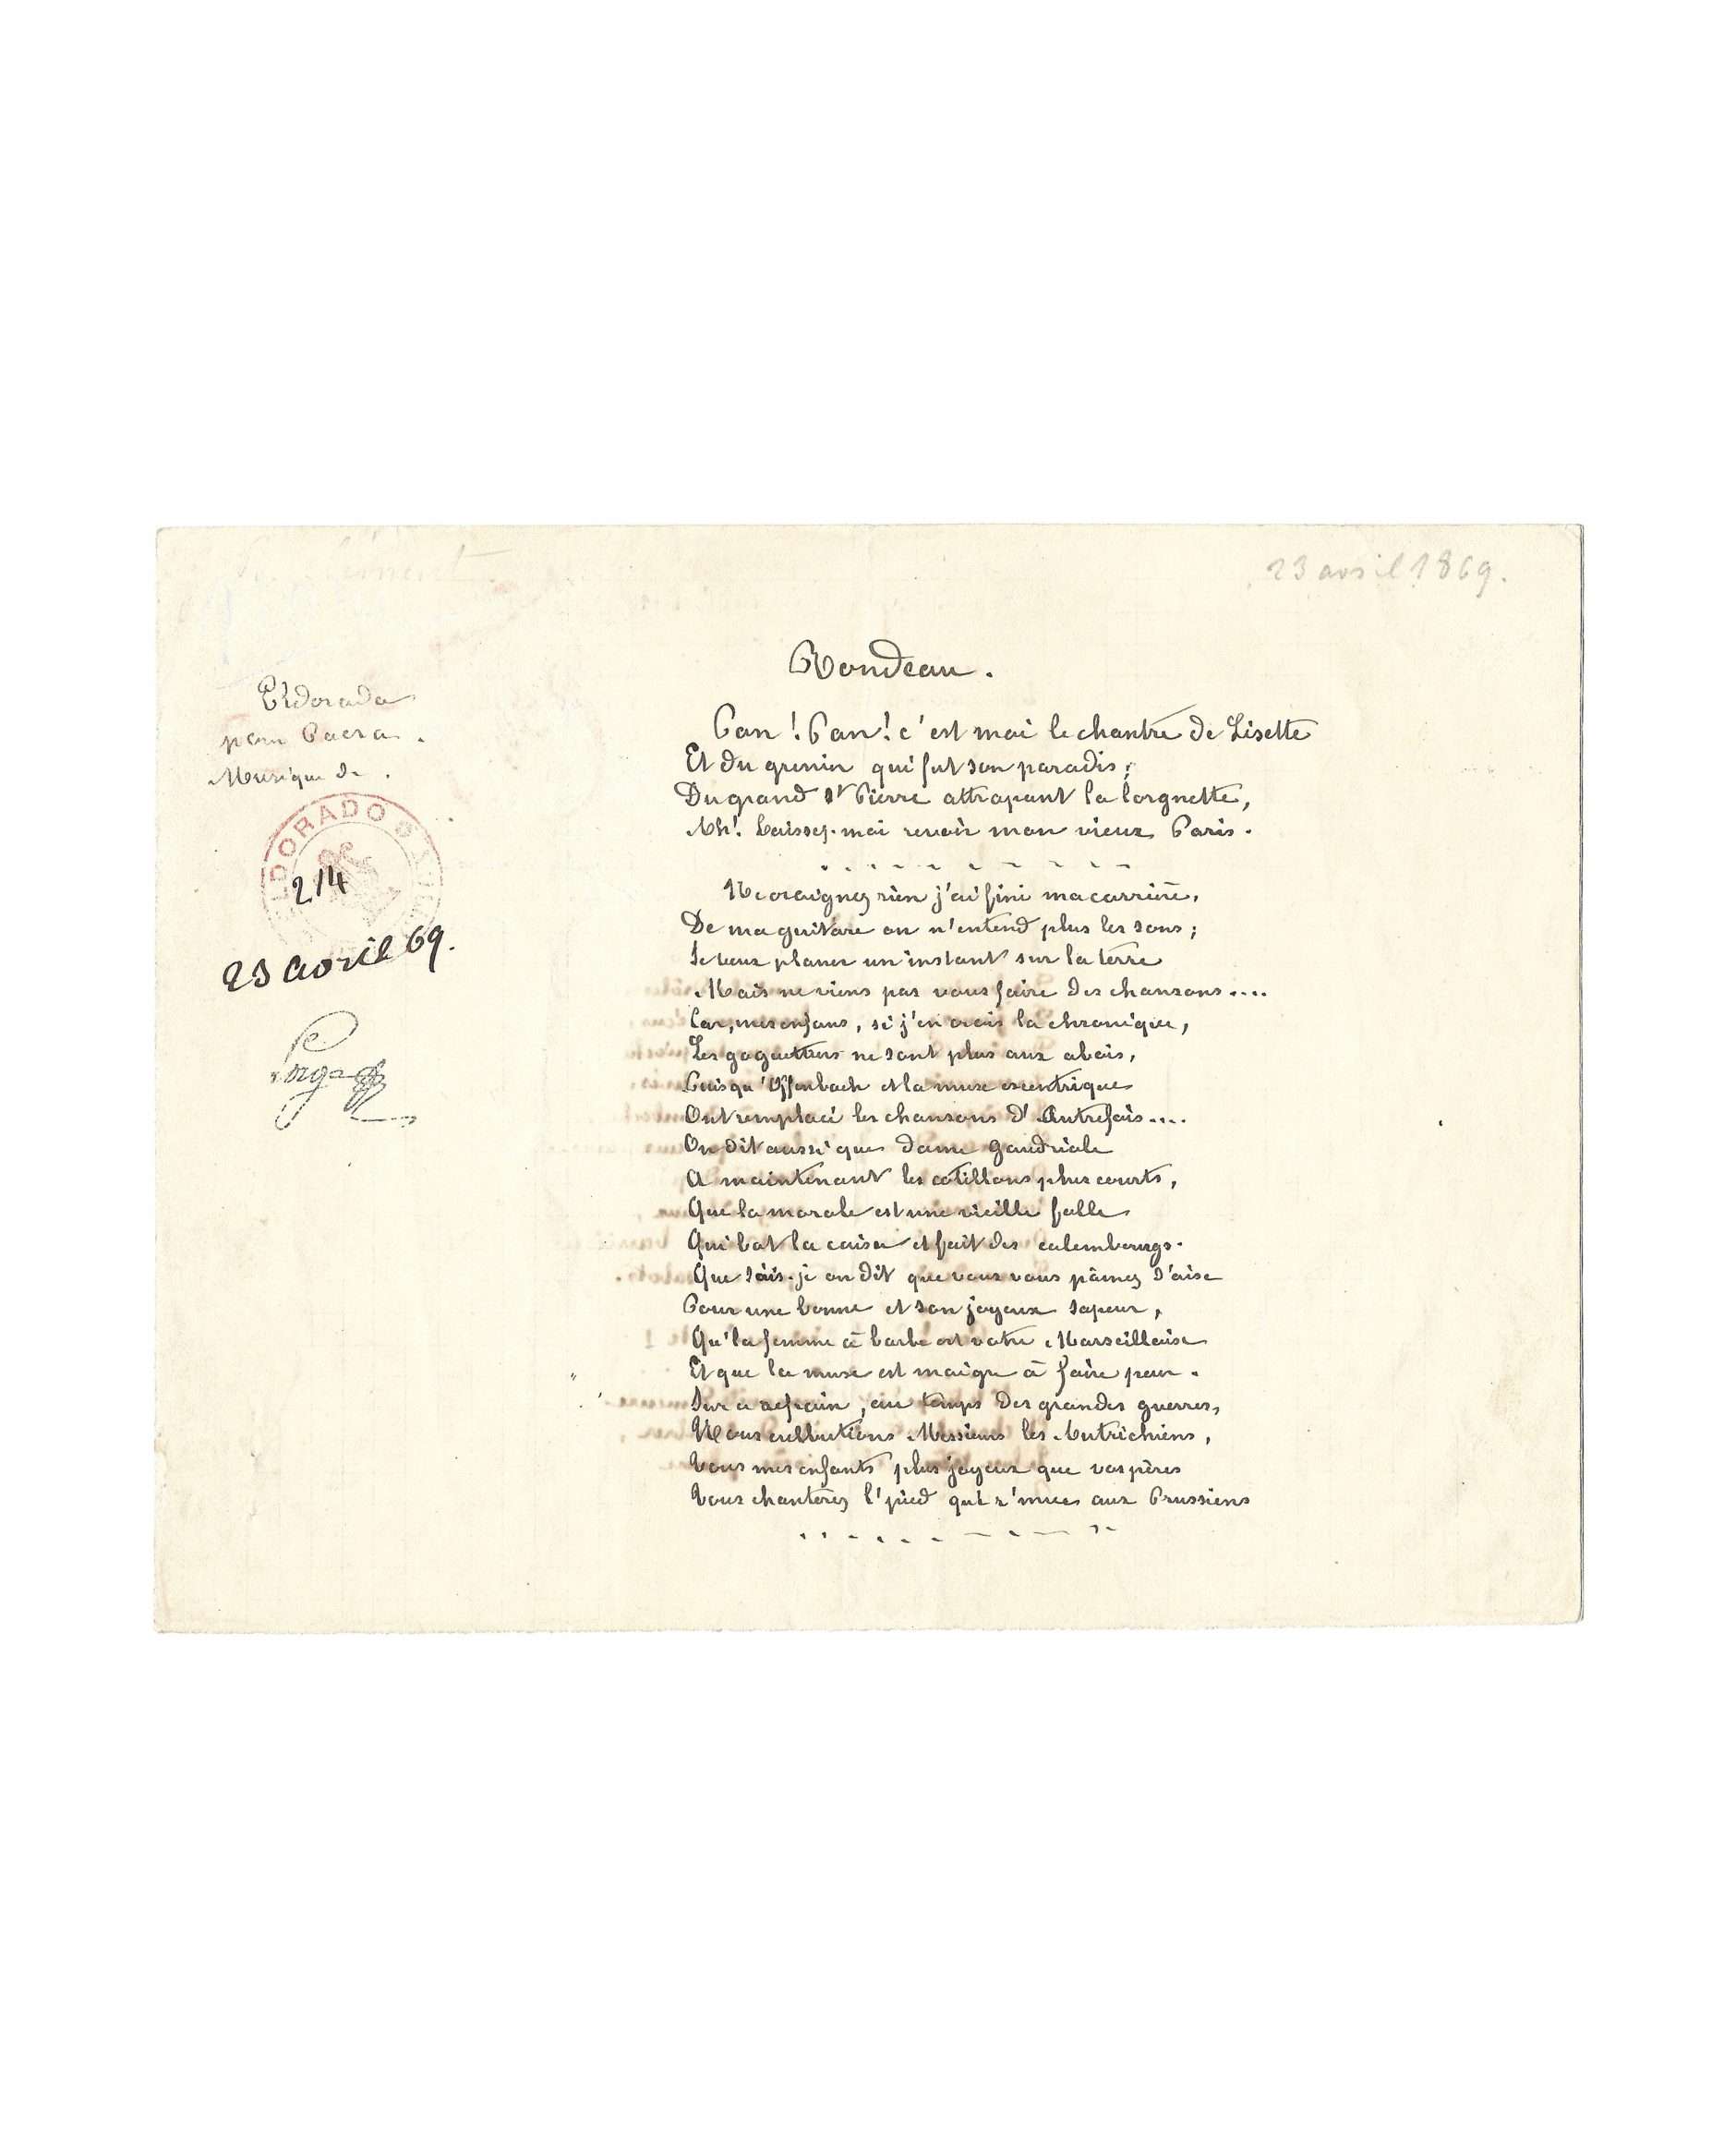 23 avril 1869.
Eldorado
pour Pacra.
Musique de .
ELDORADO
214
23 avril 69.
Rondeau.
Pan! Pan! c'est moi le chantre de Lisette
Et du grenier qui fut son paradis;
Du grand St Pierre attrapant la lorgnette,
Ah! Laissez-moi revoir mon vieux Paris.
Ne craignez rien j'ai fini ma carrière,
De ma guitare on n'entend plus les sons;
Je veux planer un instant sur la terre
Mais ne viens pas vous faire des chansons....
Car, mes enfans, si j'en crois la chronique,
Les goguettiers ne sont plus aux abois,
Puisqu'Offenbach et la muse excentrique
Ont remplacé les chansons d'Autrefois....
On dit aussi que dame Gaudriole
A maintenant les cotillons plus courts,
Que la morale est une vieille folle
Qui bat la caisse et fait des calembourgs.
Que sais-je on dit que vous vous pâmez d'aise
Pour une bonne et son joyeux sapeur,
Qu'la femme à barbe est votre Marseillaise
Et que la muse est maigre à faire peur.
Sur ce refrain, au temps des grandes guerres,
Nous culbutions Messieurs les Autrichiens,
Vous mes enfants plus joyeux que vos pères
Vous chanterez l'pied qui r'mue aux Prussiens